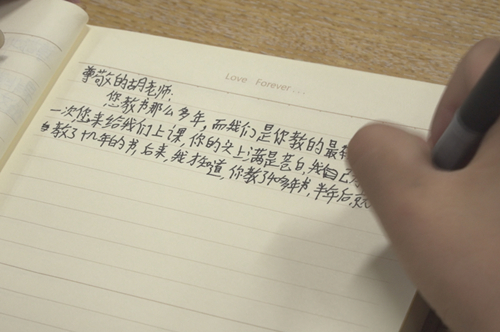 Love Forever...
尊敬的胡老师:
您教书那么多年,而我们是你教的最
一次您来给我们上课,你的头上满是苍白,我自己
教了十几年的书,后来,我才知道,你教了40多年书,半年后,